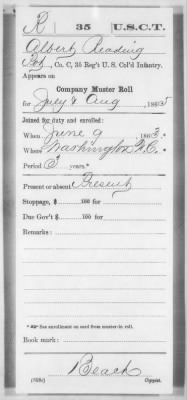 R 35 U.S.C.T.
Albert Reading
Pvt, Co. C, 35 Reg't U. S. Col'd Infantry.
Appears on
Company Muster Roll
for July & Aug, 1865
Joined for duty and enrolled:
When June 9, 1863.*
Where Washington N.C.*
Period 3 years.*
Present or absent Present
Stoppage, $ 100 for
Due Gov't $ 100 for
Remarks:
* See enrollment on card from muster-in roll.
Book mark:
Beach
(358c) Copyist.